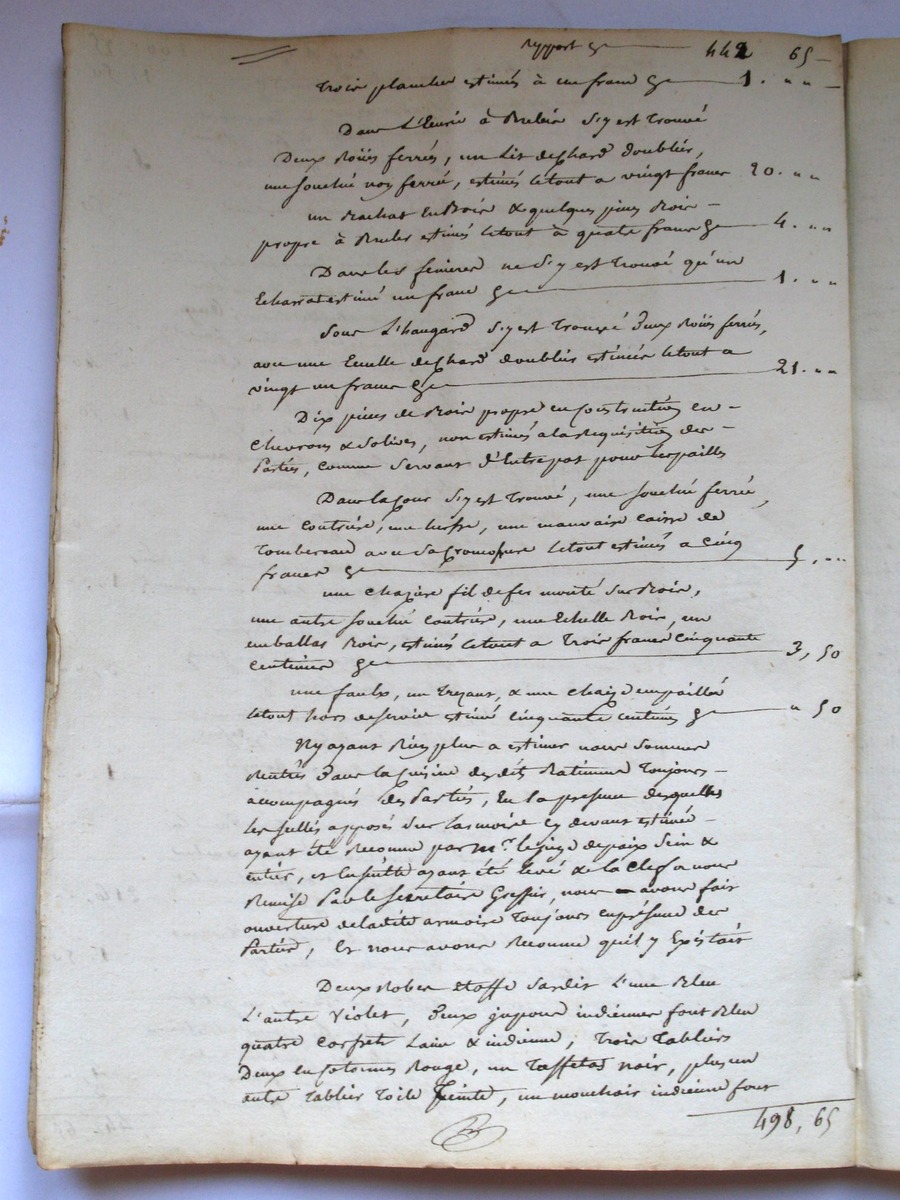 Report Ci 442 65
Trois planches estimés à un franc Ci 1. „ „
Dans L'Ecurie à Brebis S'y est Trouvé
Deux Roües ferrés, un Lit de Chard Doublier,
une fouchue non ferrée, estimés letout a vingt francs 20. „ „
un Rachat En Bois & quelques pieces Bois
propre à Bruler estimés letout à quatre francs Ci 4. „ „
Dans les fenieres ne S'y est Trouvé qu'un
Echarrat estimé un franc Ci 1. „ „
Sous L'hangard S'y est Trouvé Deux Roües ferrés,
avec une Emelle de Chard Doublier estimés letout a
vingt un francs Ci 21. „ „
Dix pieces de Bois propre en Construction en
Chevrons & Solives, non estimés a la Requisition des
Parties, Comme Servant D'Entrepat pour les pailles
Dans la Cour S'y est Trouvé, une fouchue ferrée,
une Coutriere, une herse, une mauvaise Caisse de
Tombereau avec Sa letout estimés a Cinq
francs Ci 5. „ „
une Chaziere fil de fer monté Sur Bois,
une autre fouchue Coutriere, une Echelle Bois, un
emballas Bois, estimés letout a Trois francs Cinquante
Centimes Ci 3, 50
une faulx, un Trezant, & une Chaize empaillée
letout hors de Service estimé Cinquante Centimes Ci „ 50
N'y ayant Rien plus a estimer nous Sommes
Rentrés Dans la Cuisine desdits Ratinmme Toujours
accompagnés des Parties, En la presence desquelles
les Scellés apposés Sur l'armoire Cy devant estimée
ayant été Reconnu par Mr. le juge de paix Sein &
entier, & Ensuitte ayant été Levé & la Clef a nous
Remise Par le Secretaire Greffier, nous avons fait
ouverture de ladite armoire Toujours en présence des
Parties, Et nous avons Reconnu qu'il y Existait
Deux Robes Etoffe Sardis L'une Bleu
L'autre Violet, Deux jupons indienne font Bleu
quatre Corsets Laine & indienne, Trois Tabliers
Deux en Cotonnes Rouge, un Taffetas noir, plus un
autre Tablier Toile Peinte, un mouchoir indienne font
498, 65